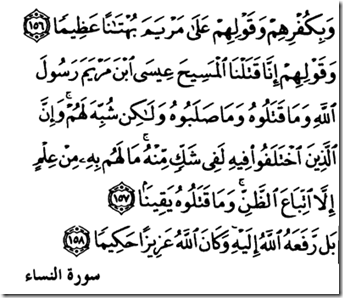 وَبِكُفْرِهِمْ وَقَوْلِهِمْ عَلَىٰ مَرْيَمَ بُهْتَٰنًا عَظِيمًا ١٥٦
وَقَوْلِهِمْ إِنَّا قَتَلْنَا ٱلْمَسِيحَ عِيسَى ٱبْنَ مَرْيَمَ رَسُولَ
ٱللَّهِ وَمَا قَتَلُوهُ وَمَا صَلَبُوهُ وَلَٰكِن شُبِّهَ لَهُمْ ۚ وَإِنَّ
ٱلَّذِينَ ٱخْتَلَفُوا۟ فِيهِ لَفِى شَكٍّ مِّنْهُ ۚ مَا لَهُم بِهِۦ مِنْ عِلْمٍ
إِلَّا ٱتِّبَاعَ ٱلظَّنِّ ۚ وَمَا قَتَلُوهُ يَقِينًۢا ١٥٧
بَل رَّفَعَهُ ٱللَّهُ إِلَيْهِ ۚ وَكَانَ ٱللَّهُ عَزِيزًا حَكِيمًا ١٥٨
سورة النساء